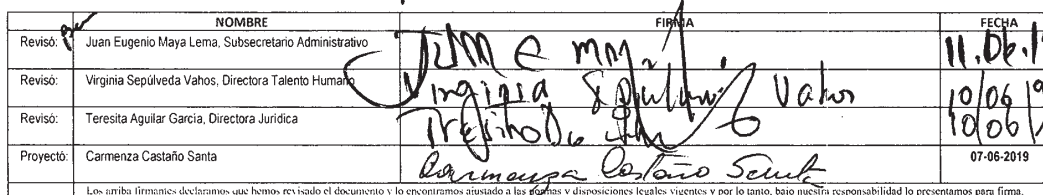 NOMBRE FIRMA FECHA
Revisó: Juan Eugenio Maya Lema, Subsecretario Administrativo 11.06.1
Revisó: Virginia Sepúlveda Vahos, Directora Talento Humano Virginia Sepúlveda Vahos 10/06/19
Revisó: Teresita Aguilar García, Directora Jurídica 10/06/
Proyectó: Carmenza Castaño Santa Carmenza Castaño Santa 07-06-2019
Los arriba firmantes declaramos que hemos revisado el documento y lo encontramos ajustado a las normas y disposiciones legales vigentes y por lo tanto, bajo nuestra responsabilidad lo presentamos para firma.